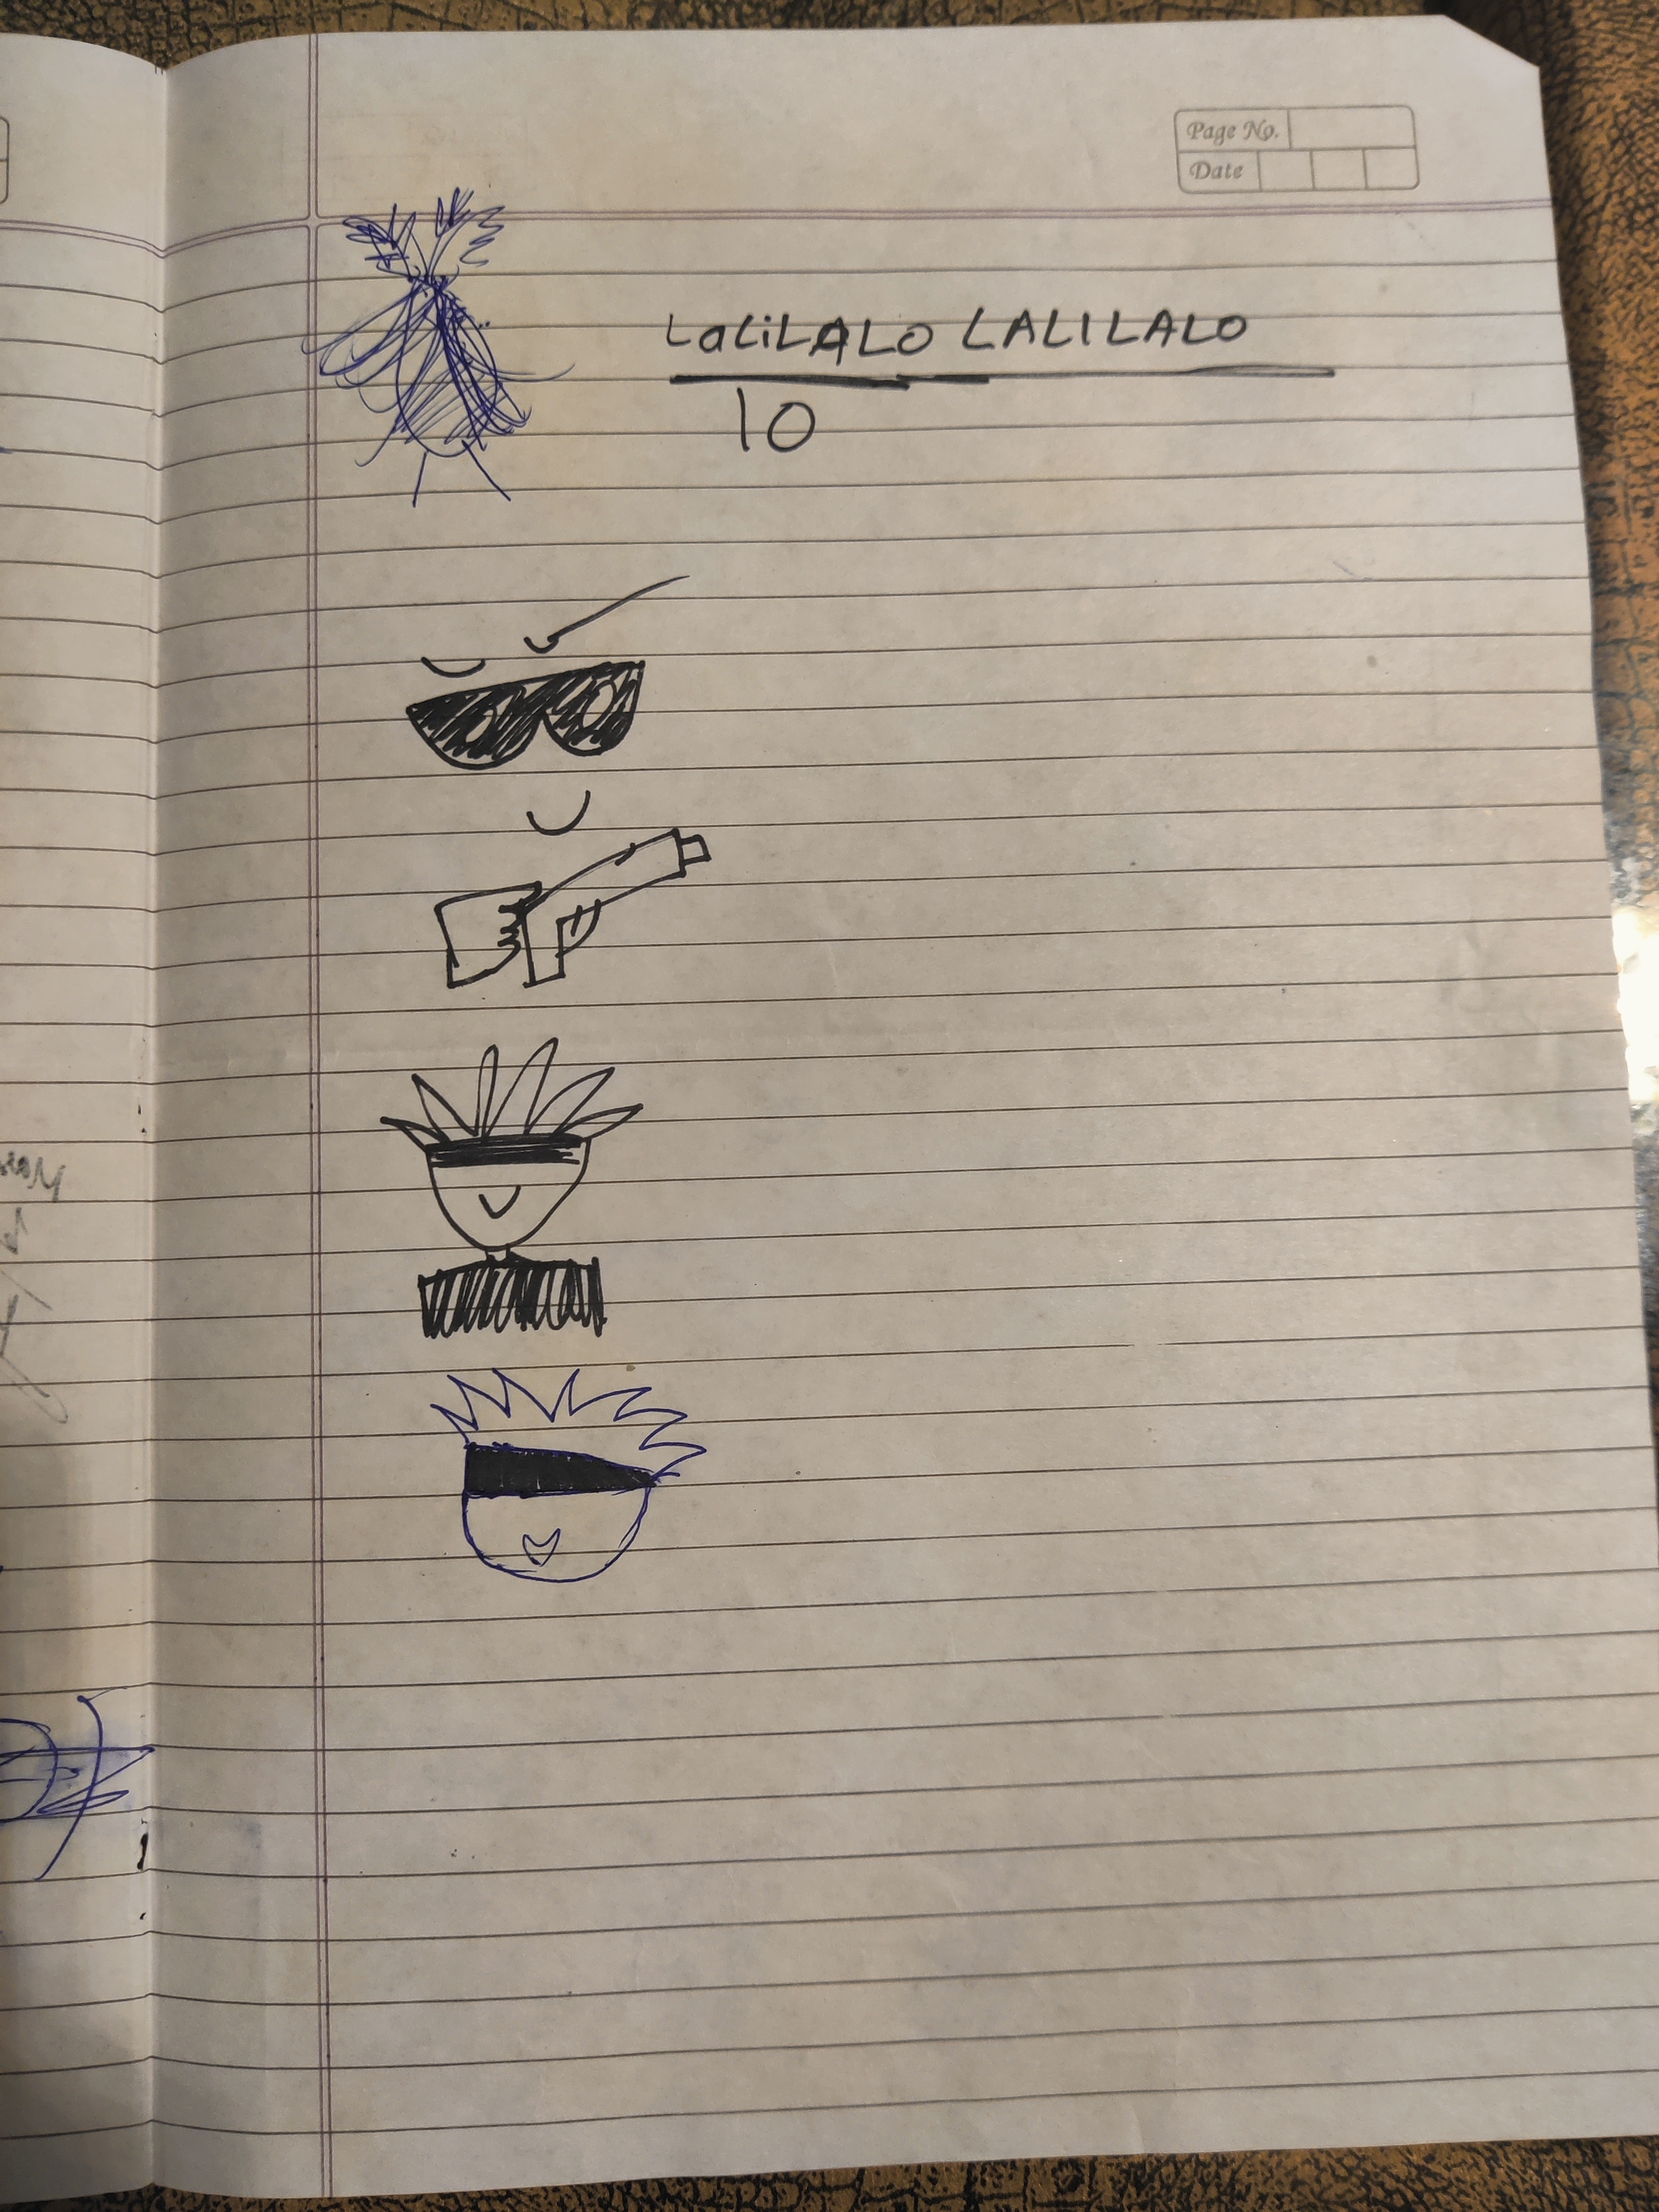 Page No.
Date
LaLiLALO LALILALO
10